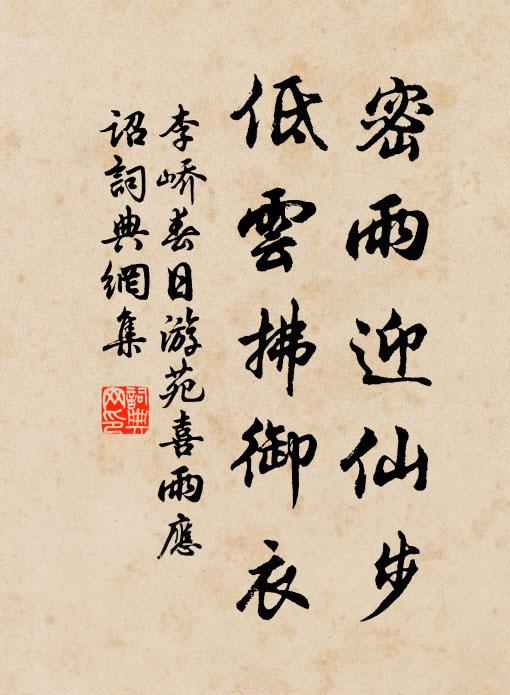 密雨迎仙步
低雲拂御衣
李嶠春日游苑喜雨應
詔詞典網集
詞典
网印